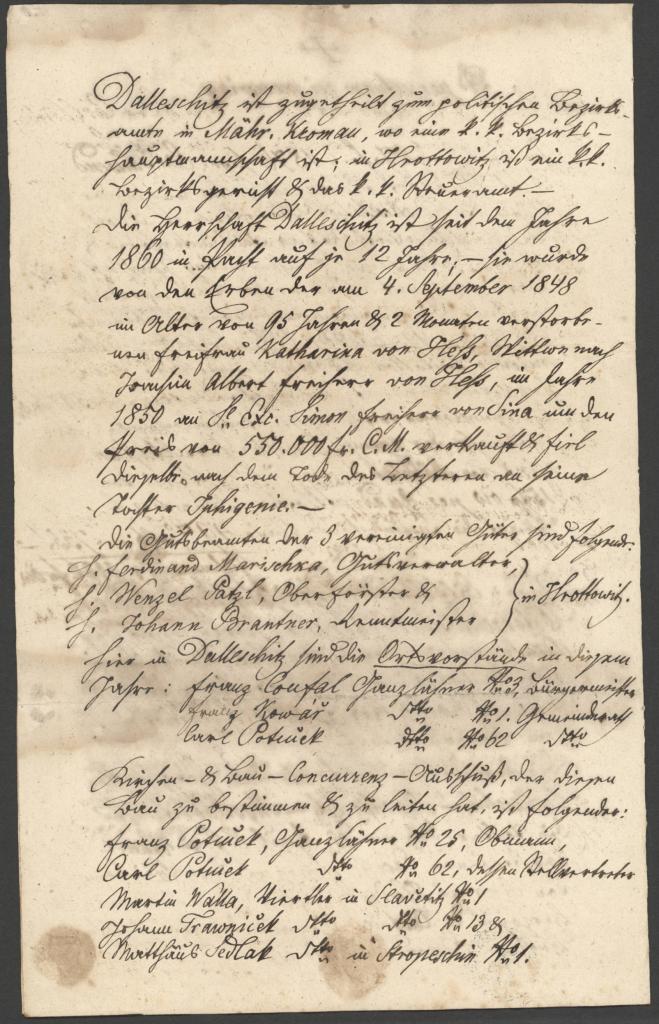 Dalleschitz ist zugetheilt zum politischen Bezirks-
amte in Mähr. Kromau, wo eine k. k. Bezirks-
hauptmannschaft ist; in Hrottowitz ist ein k. k.
Bezirksgericht & das k. k. Steueramt. —
Die Herrschaft Dalleschitz ist seit dem Jahre
1860 in Pacht auf je 12 Jahre; — sie wurde
von den Erben der am 4. September 1848
im Alter von 95 Jahren & 2 Monaten verstorbe-
nen Freifrau Katharina von Heß, Wittwe nach
Joachim Albert Freiherr von Heß, im Jahre
1850 an Sr. Exc. Simon Freiherr von Sina um den
Preis von 550.000 fr. C. M. verkauft & fiel
dieselbe nach dem Tode des Letzteren an seine
Tochter Iphigenie. —
Die Gutsbeamten der 3 vereinigten Güter sind folgende:
H. Ferdinand Marischka, Gutsverwalter,
H. Wenzel Patzl, Oberförster & in Hrottowitz.
H. Johann Brantner, Rentmeister
Hier in Dalleschitz sind die Ortsvorstände in diesem
Jahre: Franz Confal Ganzlähner No 3, Bürgermeister
Franz Kowář dtto No 1. Gemeinderath
Carl Potuček dtto No 62 dtto
Kirchen- & Bau-Concurrenz-Ausschuß, der diesen
Bau zu bestimmen & zu leiten hat, ist folgender:
Franz Potuček, Ganzlähner No 25, Obmann,
Carl Potuček dtto No 62, dessen Stellvertreter
Martin Walla, Viertler in Slavětitz No 1
Johann Trawniček dtto dtto No 13 &
Matthäus Sedlak dtto in Stropeschin No 1.